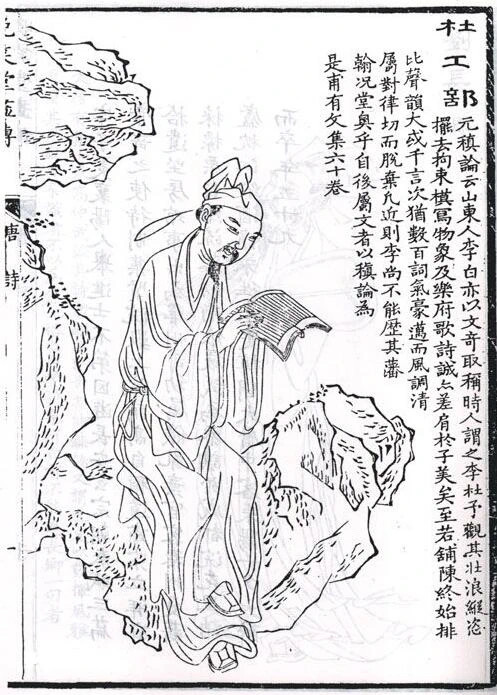 杜工部
元稹論云山東人李白亦以文奇取稱時人謂之李杜予觀其壯浪縱恣
擺去拘束模寫物象及樂府歌詩誠亦差肩於子美矣至若舖陳終始排
比聲韻大或千言次猶數百詞氣豪邁而風調清
屬對律切而脫棄凡近則李尚不能歷其藩
翰况堂奧乎自後屬文者以稹論為
是甫有文集六十卷